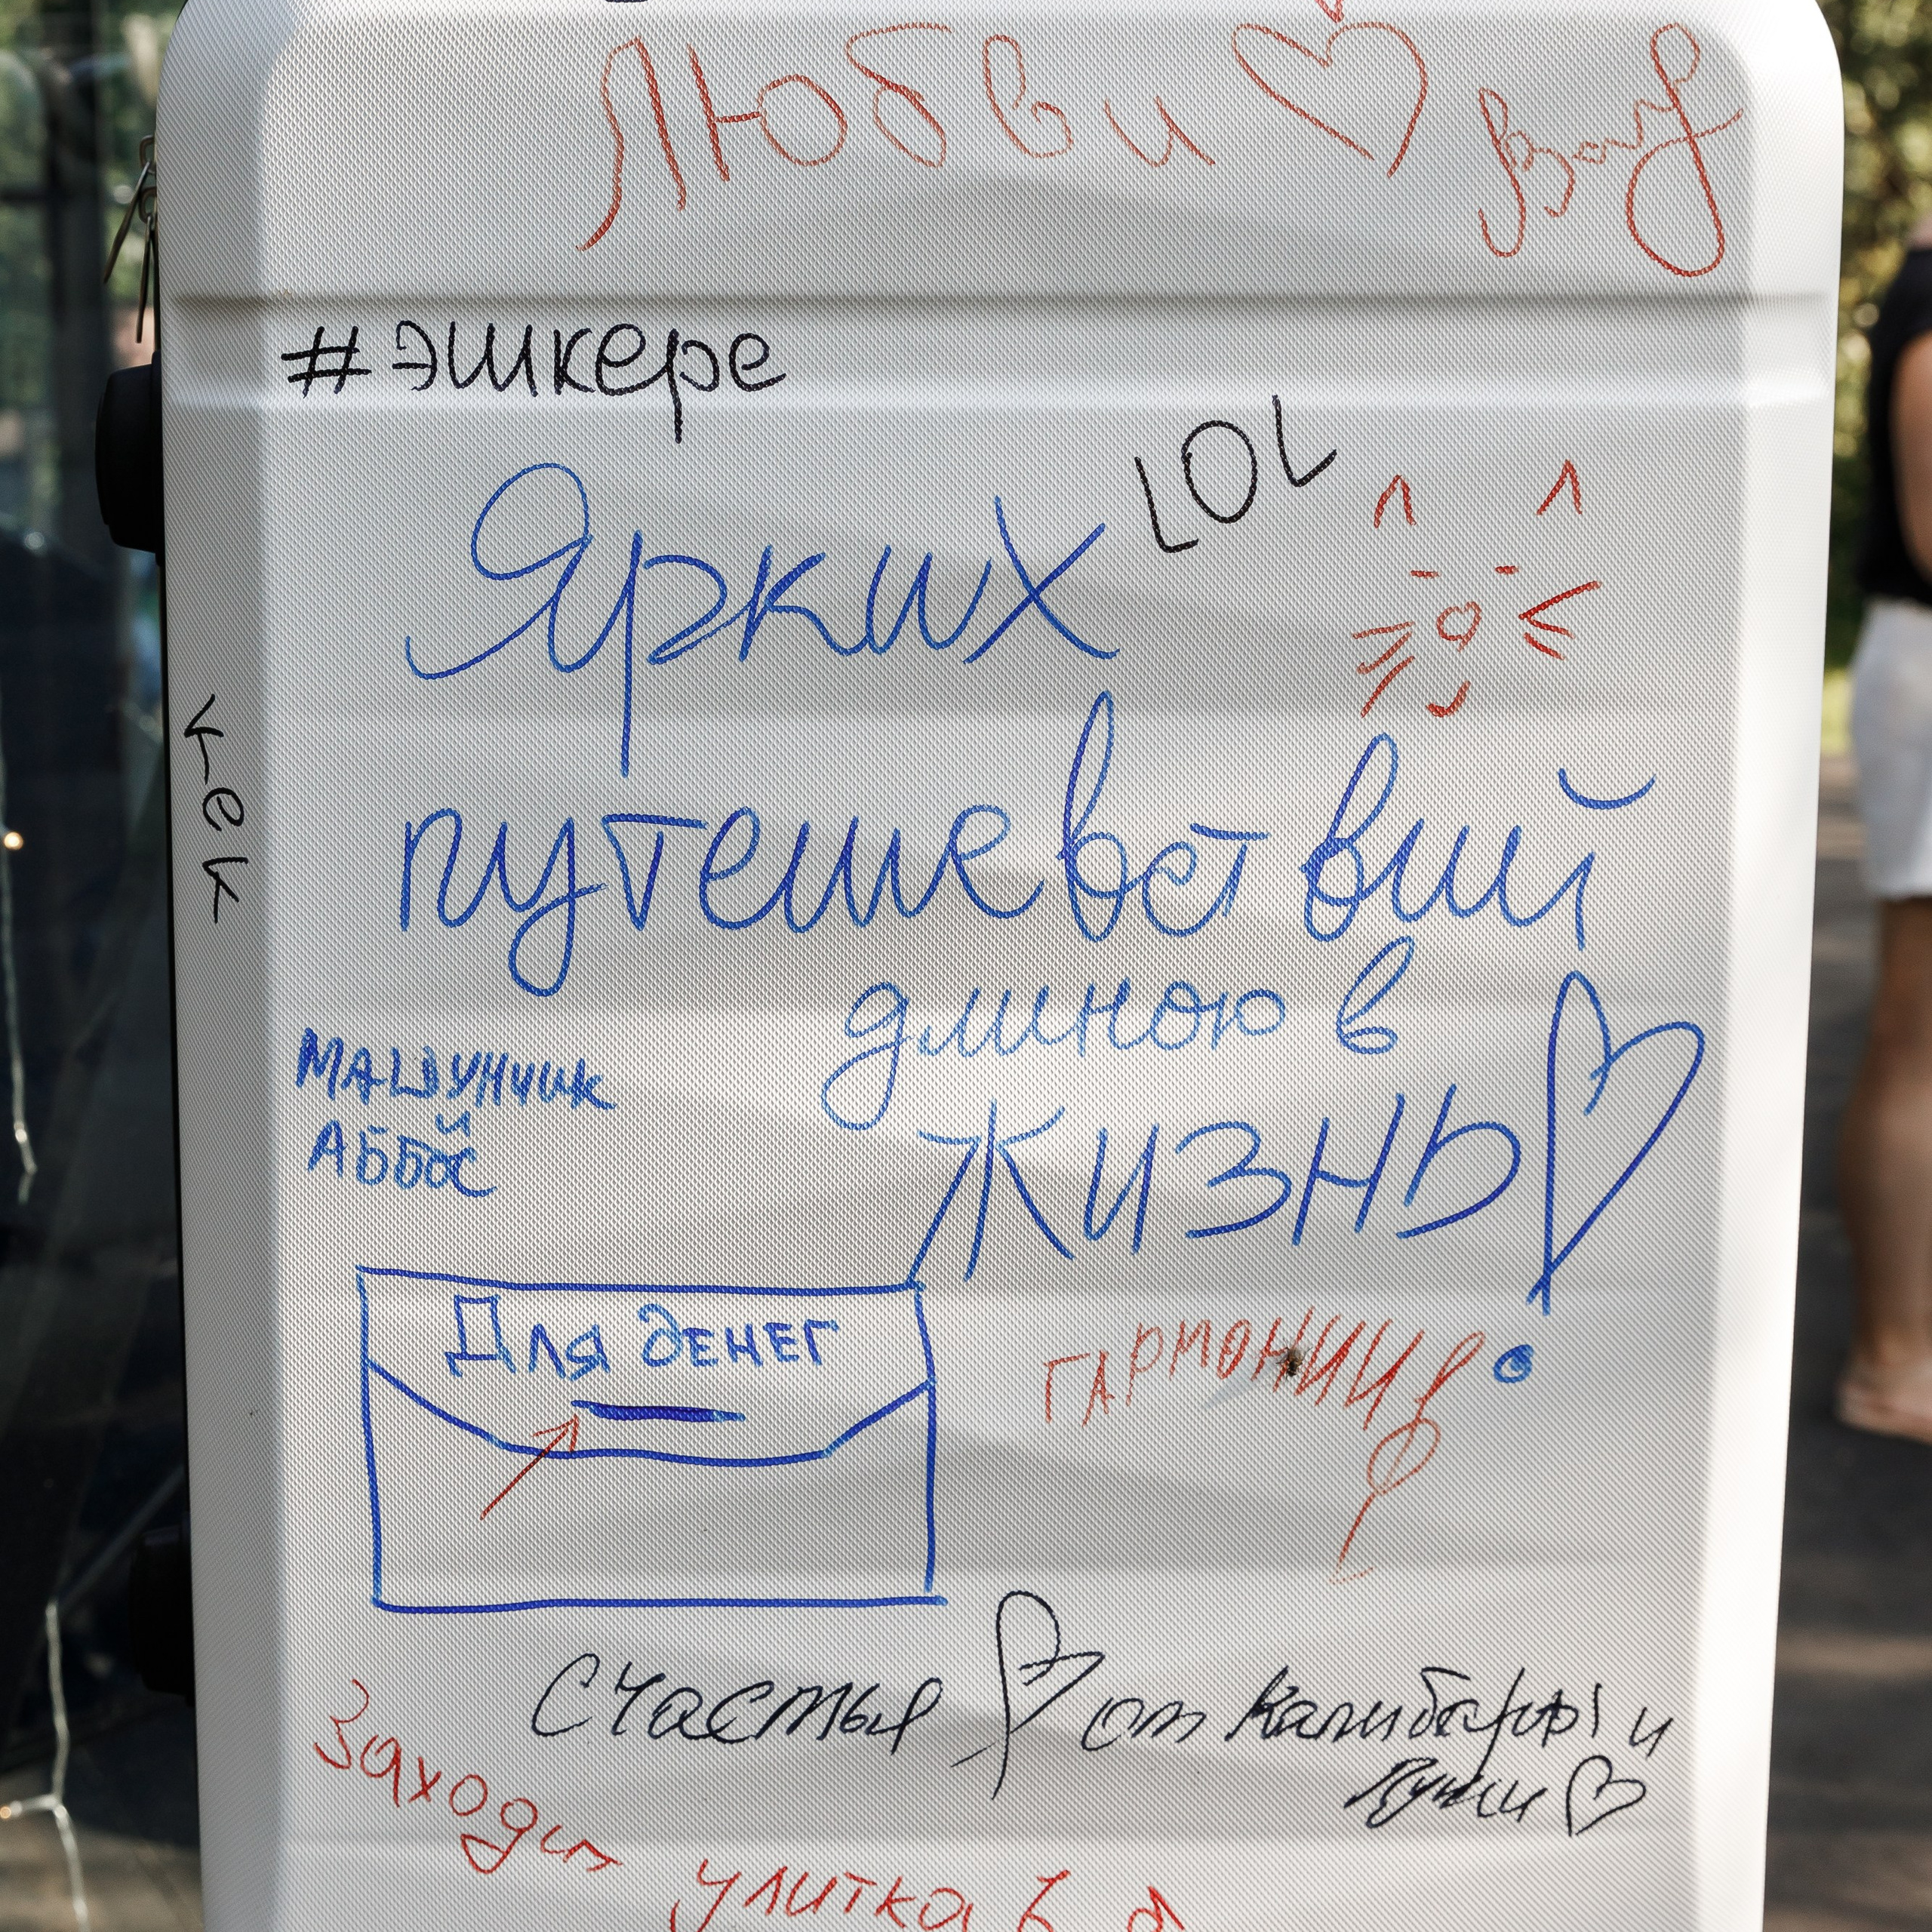 Любви
#эшкере
LOL
Ярких
чек
путешевствий
длиною в
жизнь
МАШУНЧИК
и
АББОС
Для денег
ГАРМОНИИ
Счастья от капибары и
Заходит улитка в